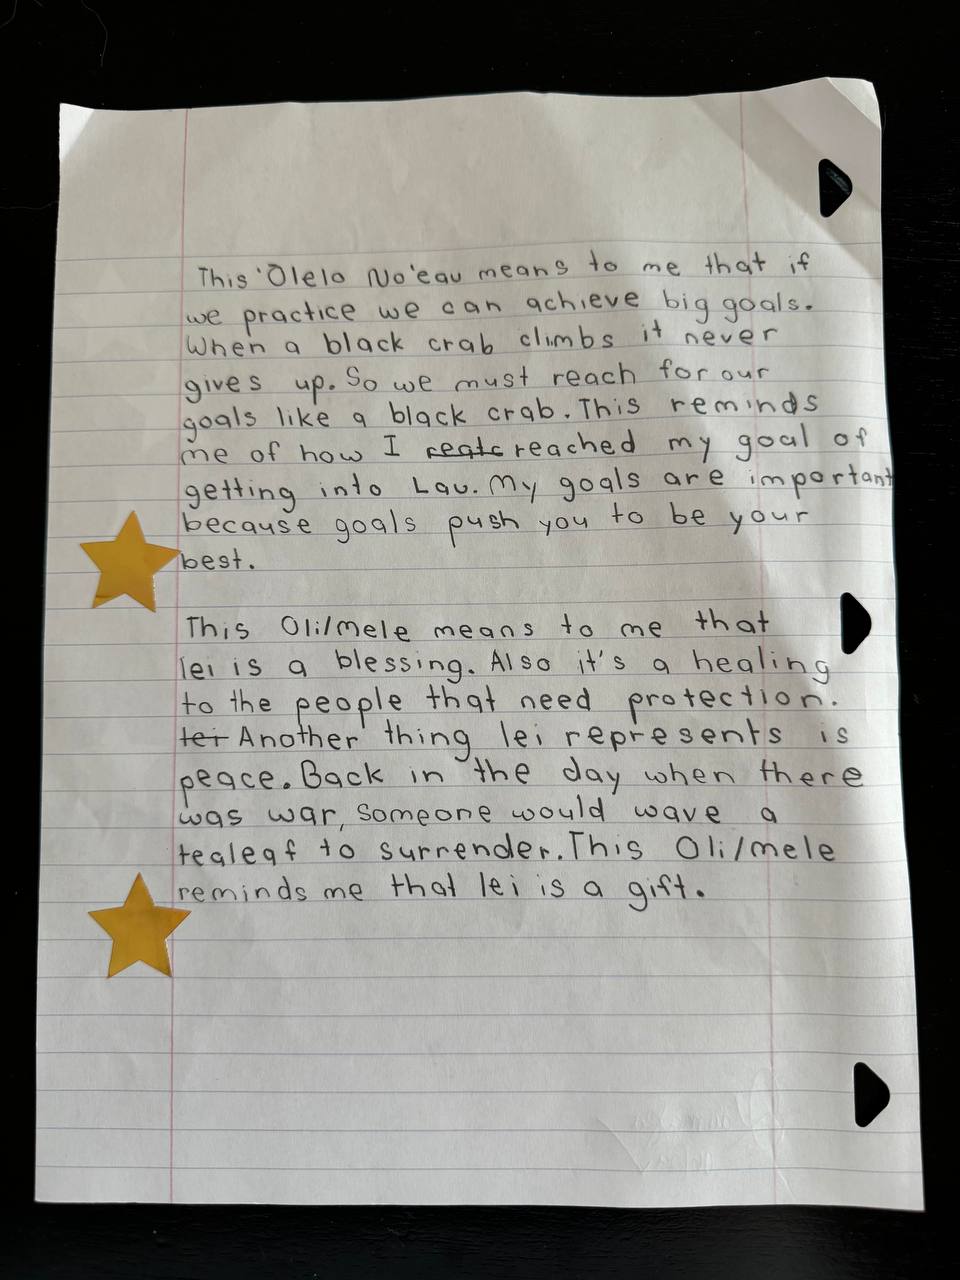 This 'Olelo No'eau means to me that if
we practice we can achieve big goals.
When a black crab climbs it never
gives up. So we must reach for our
goals like a black crab. This reminds
me of how I reached my goal of
getting into Lau. My goals are important
because goals push you to be your
best.
This Oli/mele means to me that
lei is a blessing. Also it's a healing
to the people that need protection.
lei Another thing lei represents is
peace. Back in the day when there
was war, someone would wave a
tealeaf to surrender. This Oli/mele
reminds me that lei is a gift.